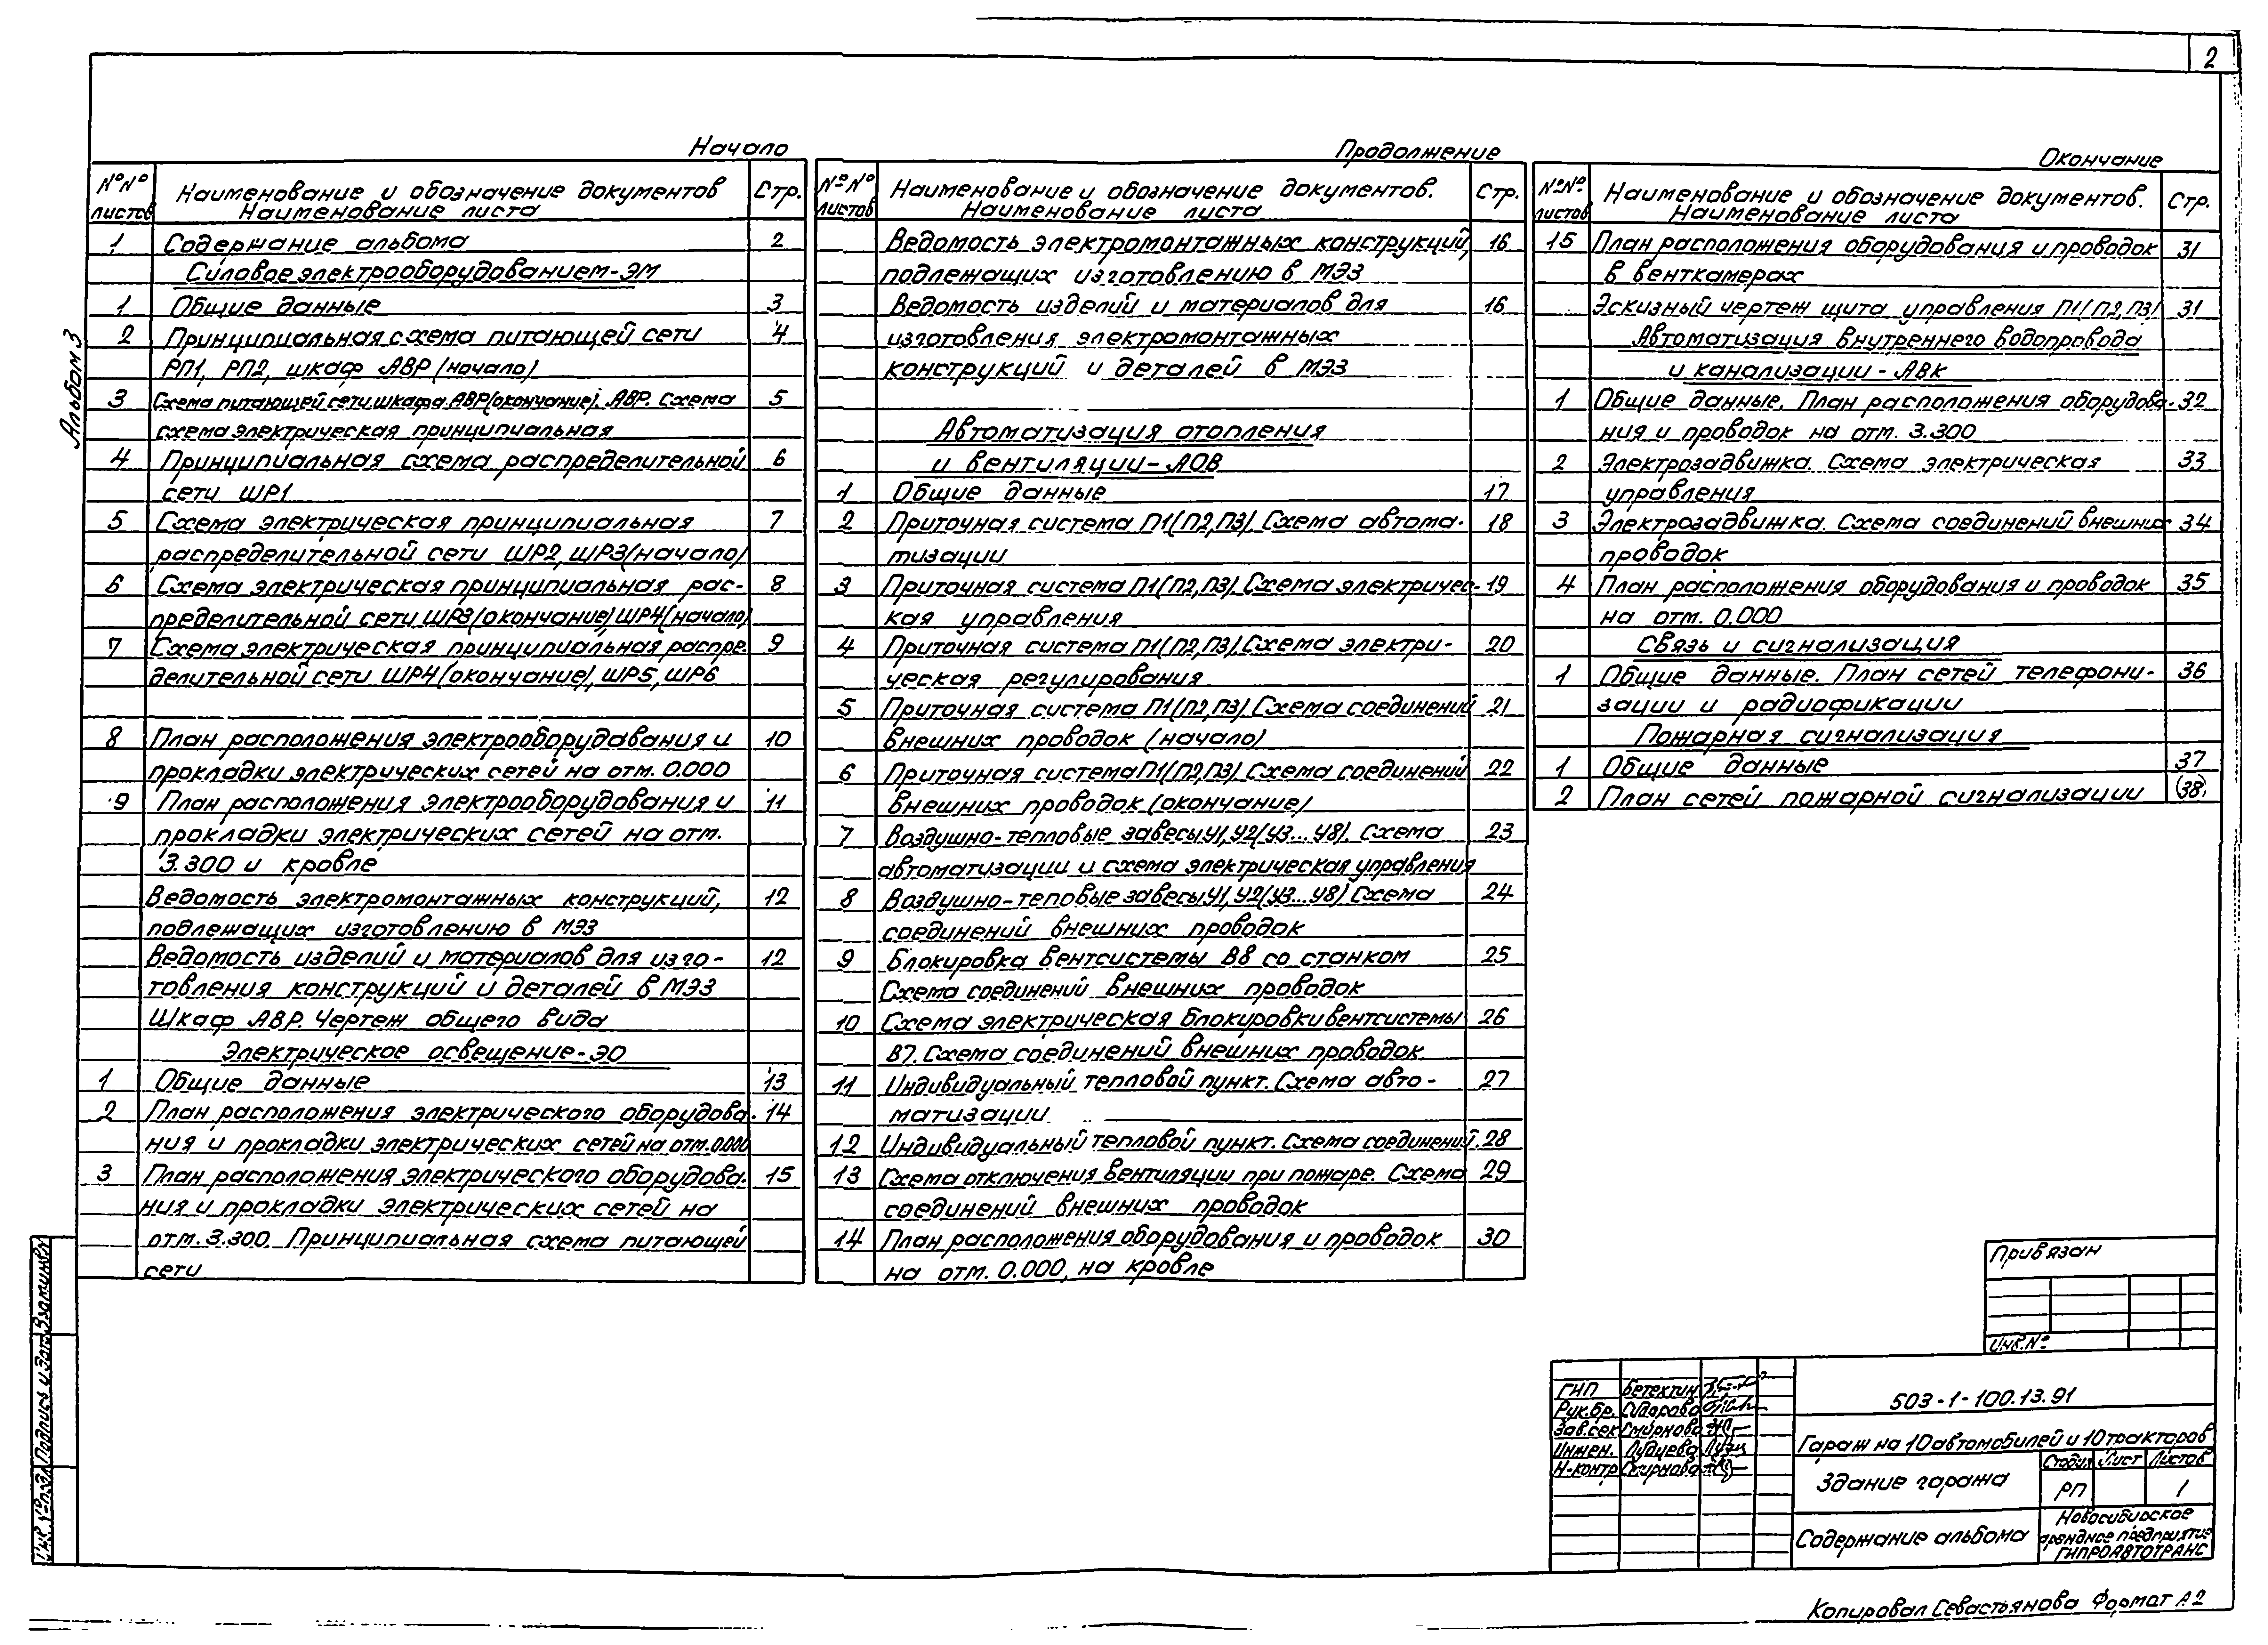 2
Альбом 3
Начало
№№ листов
Наименование и обозначение документов
Наименование листа
Стр.
1 Содержание альбома 2
Силовое электрооборудованием-ЭМ
1 Общие данные 3
2 Принципиальная схема питающей сети 4
РП1, РП2, шкаф АВР (начало)
3 Схема питающей сети, шкафа АВР(окончание). АВР. Схема 5
схема электрическая принципиальная
4 Принципиальная схема распределительной 6
сети ШР1
5 Схема электрическая принципиальная 7
распределительной сети ШР2, ШР3(начало)
6 Схема электрическая принципиальная рас- 8
пределительной сети ШР3(окончание) ШР4(начало)
7 Схема электрическая принципиальная распре- 9
делительной сети ШР4(окончание), ШР5, ШР6
8 План расположения электрооборудавания и 10
прокладки электрических сетей на отм. 0.000
9 План расположения электрооборудования и 11
прокладки электрических сетей на отм.
3.300 и кровле
Ведомость электромонтажных конструкций, 12
подлежащих изготовлению в МЭЗ
Ведомость изделий и материалов для изго- 12
товления конструкций и деталей в МЭЗ
Шкаф АВР. Чертеж общего вида
Электрическое освещение-ЭО
1 Общие данные 13
2 План расположения электрического оборудова- 14
ния и прокладки электрических сетей на отм.0.000
3 План расположения электрического оборудова- 15
ния и прокладки электрических сетей на
отм. 3.300. Принципиальная схема питающей
сети
Продолжение
№№ листов
Наименование и обозначение документов.
Наименование листа
Стр.
Ведомость электромонтажных конструкций, 16
подлежащих изготовлению в МЭЗ
Ведомость изделий и материалов для 16
изготовления электромонтажных
конструкций и деталей в МЭЗ
Автоматизация отопления
и вентиляции-АОВ
1 Общие данные 17
2 Приточная система П1(П2,П3). Схема автома- 18
тизации
3 Приточная система П1(П2,П3). Схема электричес- 19
кая управления
4 Приточная система П1(П2,П3). Схема электри- 20
ческая регулирования
5 Приточная система П1(П2,П3). Схема соединений 21
внешних проводок (начало)
6 Приточная система П1(П2,П3). Схема соединений 22
внешних проводок (окончание)
7 Воздушно-тепловые завесы У1, У2(У3...У8). Схема 23
автоматизации и схема электрическая управления
8 Воздушно-теповые завесы У1, У2(У3...У8) Схема 24
соединений внешних проводок
9 Блокировка вентсистемы В8 со станком 25
Схема соединений внешних проводок
10 Схема электрическая блокировки вентсистемы 26
В7. Схема соединений внешних проводок
11 Индивидуальный тепловой пункт. Схема авто- 27
матизации
12 Индивидуальный тепловой пункт. Схема соединений. 28
13 Схема отключения вентиляции при пожаре. Схема 29
соединений внешних проводок
14 План расположения оборудования и проводок 30
на отм. 0.000, на кровле
Окончание
№№ листов
Наименование и обозначение документов.
Наименование листа
Стр.
15 План расположения оборудования и проводок 31
в венткамерах
Эскизный чертеж щита управления П1(П2,П3) 31
Автоматизация внутреннего водопровода
и канализации-АВК
1 Общие данные. План расположения оборудова- 32
ния и проводок на отм. 3.300
2 Электрозадвижка. Схема электрическая 33
управления
3 Электрозадвижка. Схема соединений внешних 34
проводок
4 План расположения оборудования и проводок 35
на отм. 0.000
Связь и сигнализация
1 Общие данные. План сетей телефони- 36
зации и радиофикации
Пожарная сигнализация
1 Общие данные 37
2 План сетей пожарной сигнализации (38)
Взам.инв.№
Подпись и дата
Инв.№ подл
Привязан
Инв.№
ГИП Бетехтин
Рук.бр. Сидорова
Зав.сек Смирнова
Инжен.
Н-контр Смирнова
503-1-100.13.91
Гараж на 10 автомобилей и 10 тракторов
Здание гаража
Стадия Лист Листов
РП 1
Содержание альбома
Новосибирское
арендное предприятие
ГИПРОАВТОТРАНС
Копировал Севастьянова Формат А2